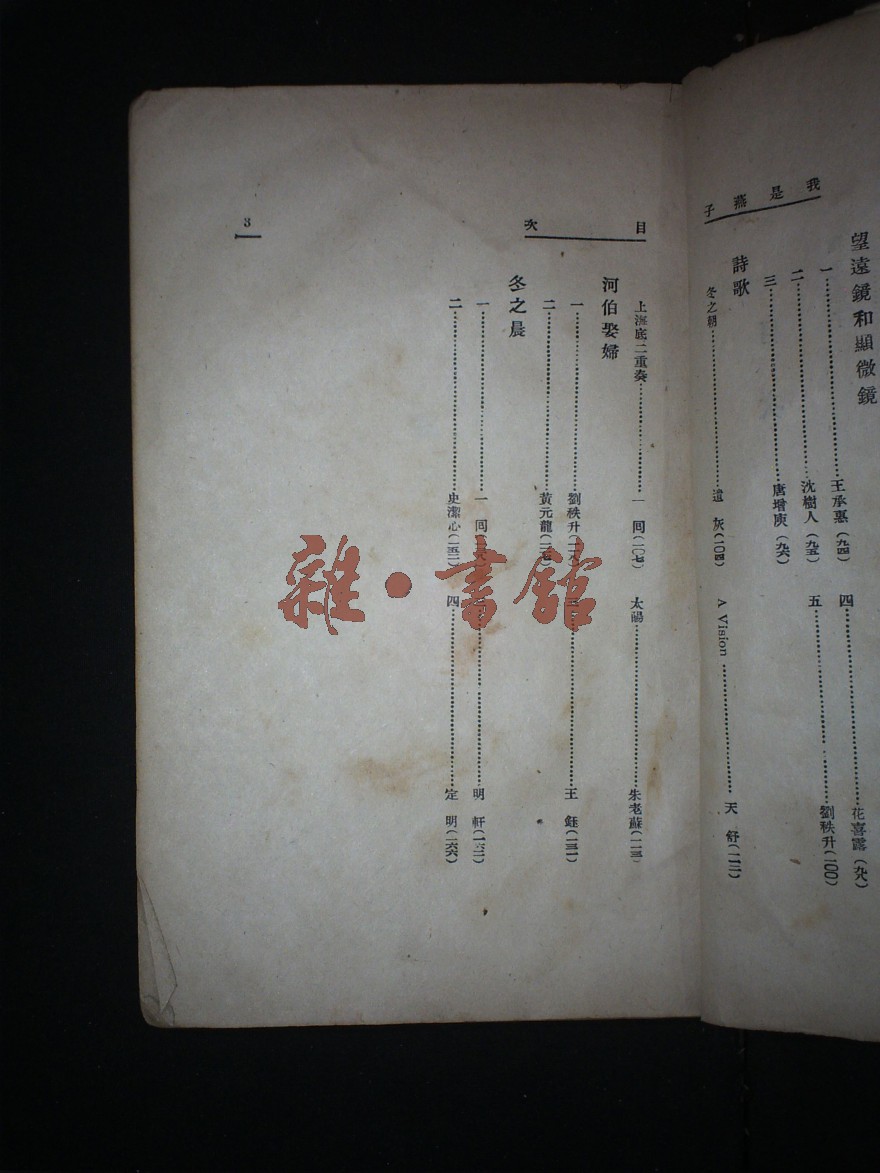 我是燕子
望遠鏡和顯微鏡
一……王承惠(九四)
四……花喜露(九八)
二……沈樹人(九五)
五……劉秩升(一〇〇)
三……唐增庾(九六)
詩歌
冬之朝……遺 灰(一〇四)
A Vision……天 舒(一一二)
目次
上海底二重奏……一 同(一〇七)
太陽……朱老蘇(一一三)
河伯娶婦
一……劉秩升
三……王 鈺(一三一)
二……黃元龍
冬之晨
一……一 同
三……明 軒(一六二)
二……史潔心(一五二)
四……定 明(一六六)
3
雜·書館